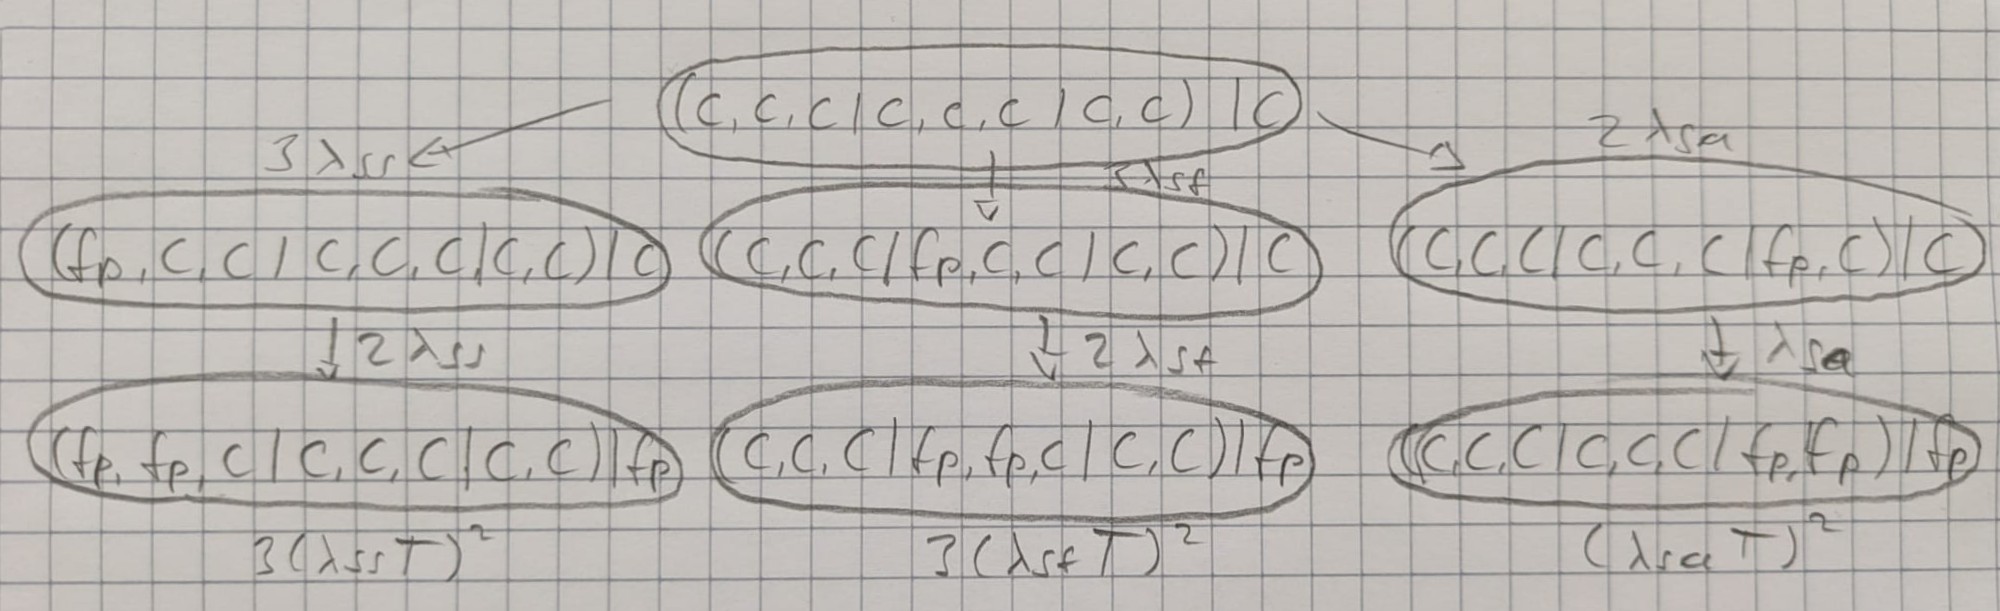 (c, c, c / c, c, c / c, c) | c
3 λss
3 λsf
2 λsa
(fp, c, c / c, c, c / c, c) | c
(c, c, c / fp, c, c / c, c) | c
(c, c, c / c, c, c / fp, c) | c
2 λss
2 λsf
λsa
(fp, fp, c / c, c, c / c, c) | fp
(c, c, c / fp, fp, c / c, c) | fp
(c, c, c / c, c, c / fp, fp) | fp
3(λss T)²
3(λsf T)²
(λsa T)²